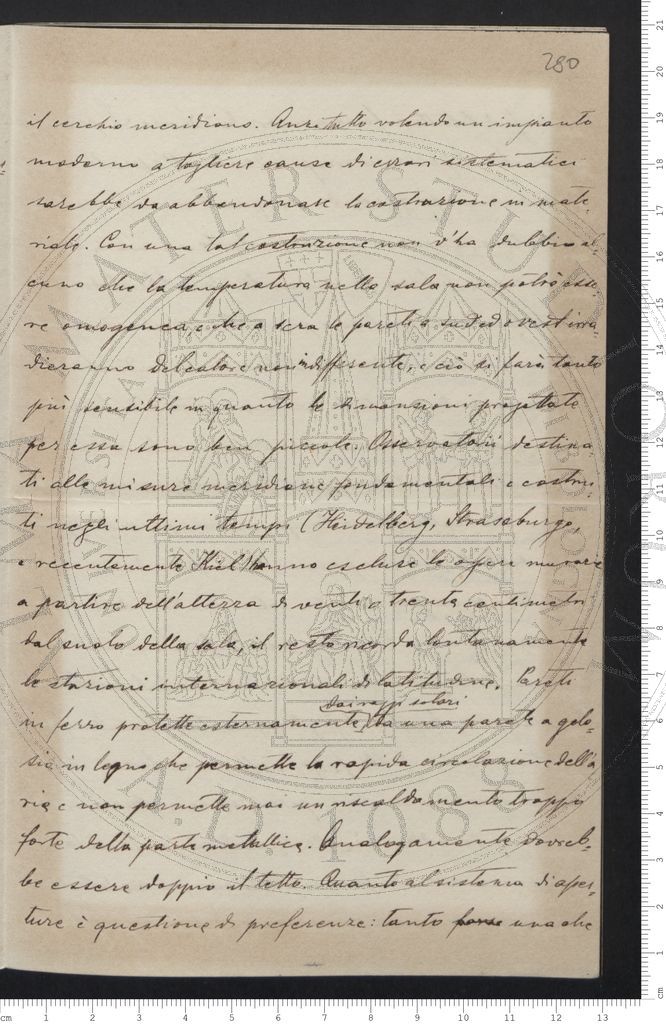 280
il cerchio meridiano. Anzitutto volendo un impianto
moderno a togliere cause di errori sistematici
sarebbe da abbandonare la costruzione in mate-
riale. Con una tal costruzione non v'ha dubbio al-
cuno che la temperatura nella sala non potrà esse-
re omogenea e che a sera le pareti a sud ed ovest irra-
dieranno del calore non indifferente, e ciò si farà tanto
più sensibile in quanto le dimensioni progettate
per essa sono ben piccole. Osservatori destina-
ti alle misure meridiane fondamentali e costrui-
ti negli ultimi tempi (Heidelberg, Strasburgo,
e recentemente Kiel) hanno escluse le opere murarie
a partire dall'altezza di venti o trenta centimetri
dal suolo della sala, il resto ricorda lontanamente
le stazioni internazionali di latitudine. Pareti
dai raggi solari
in ferro protette esternamente da una parete a gelo-
sia in legno che permette la rapida circolazione dell'a
ria e non permette mai un riscaldamento troppo
forte della parte metallica. Analogamente dovreb-
be essere doppio il tetto. Quanto al sistema di aper-
ture è questione di preferenze: tanto una che
ALMA MATER STUDIORUM
A.D. 1088